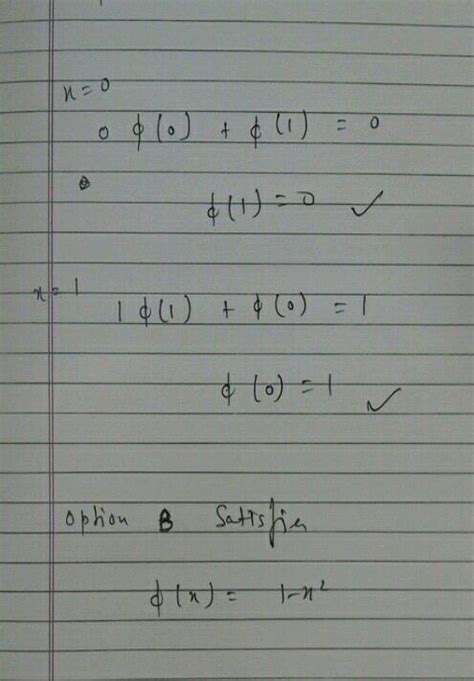 x = 0
0 ϕ(0) + ϕ(1) = 0
ϕ(1) = 0 ✓
x = 1
1 ϕ(1) + ϕ(0) = 1
ϕ(0) = 1 ✓
option B Satisfies
ϕ(x) = 1-x²